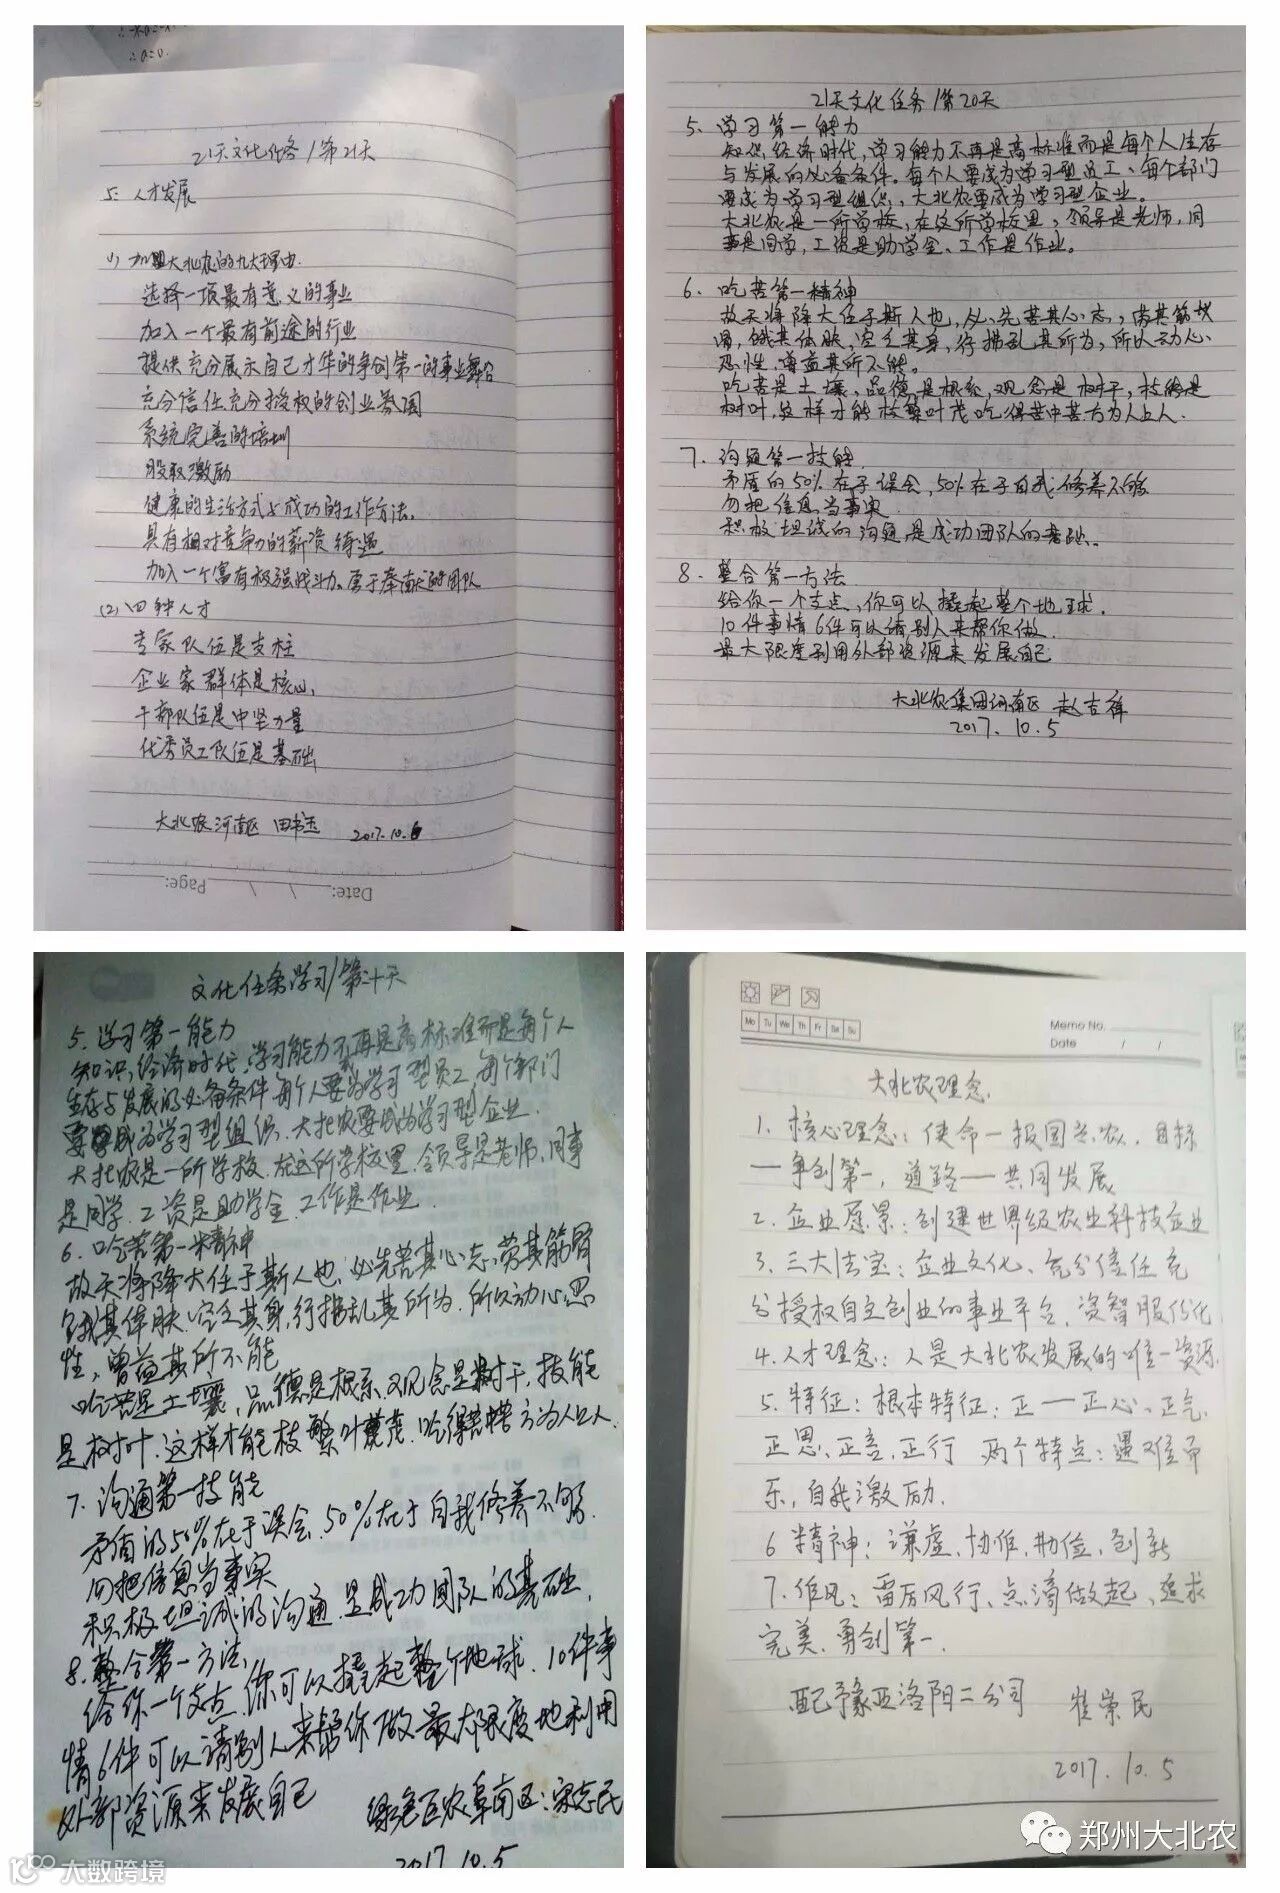 ∴a=0.
21天文化任务/第21天
5. 人才发展
(1) 加盟大北农的九大理由.
选择一项最有意义的事业
加入一个最有前途的行业
提供充分展示自己才华的争创第一的事业舞台
充分信任充分授权的创业氛围
系统完善的培训
股权激励
健康的生活方式与成功的工作方法.
具有相对竞争力的薪资待遇
加入一个富有极强战斗力、勇于奉献的团队
(2) 四种人才
专家队伍是支柱
企业家群体是核心
干部队伍是中坚力量
优秀员工队伍是基础
大北农河南区 田书玉 2017.10.6
Date: / / Page:
21天文化任务/第20天
5. 学习第一能力
知识经济时代,学习能力不再是高标准而是每个人生存
与发展的必备条件。每个人要成为学习型员工、每个部门
要成为学习型组织,大北农要成为学习型企业。
大北农是一所学校,在这所学校里,领导是老师,同
事是同学,工资是助学金、工作是作业。
6. 吃苦第一精神
故天将降大任于斯人也,必先苦其心志,劳其筋
骨,饿其体肤,空乏其身,行拂乱其所为,所以动心
忍性,曾益其所不能。
吃苦是土壤,品德是根系,观念是树干,技能是
树叶,这样才能枝繁叶茂吃得苦中苦方为人上人.
7. 沟通第一技能
矛盾的50%在于误会,50%在于自我修养不够
勿把信息当事实
积极坦诚的沟通是成功团队的基础。
8. 整合第一方法
给你一个支点,你可以撬起整个地球.
10件事情6件可以请别人来帮你做.
最大限度利用外部资源来发展自己
大北农集团河南区 赵吉祥
2017.10.5
文化任务学习/第二十天
5. 学习第一能力
知识经济时代,学习能力不再是高标准而是每个人
生存与发展的必备条件每个人要为学习型员工,每个部门
要成为学习型组织.大北农要成为学习型企业.
大北农是一所学校.在这所学校里.领导是老师,同事
是同学.工资是助学金.工作是作业.
6. 吃苦第一精神
故天将降大任于斯人也,必先苦其心志,劳其筋骨
饿其体肤.空乏其身.行拂乱其所为.所以动心忍
性,曾益其所不能
吃苦是土壤,品德是根系.观念是树干,技能
是树叶.这样才能枝繁叶茂.吃得苦中苦方为人上人.
7. 沟通第一技能
矛盾的50%在于误会.50%在于自我修养不够.
勿把信息当事实
积极坦诚的沟通是成功团队的基础.
8. 整合第一方法.
给你一个支点.你可以撬起整个地球.10件事
情6件可以请别人来帮你做最大限度地利用
外部资源来发展自己
绿色巨农阜南区:宋志民
2017.10.5
Mo Tu We Th Fr Sa Su
Memo No.
Date / /
大北农理念.
1. 核心理念:使命—报国兴农.目标
—争创第一,道路——共同发展
2. 企业愿景:创建世界级农业科技企业
3. 三大法宝:企业文化、充分信任充
分授权自主创业的事业平台,资智股份化
4. 人才理念:人是大北农发展的唯一资源.
5. 特征:根本特征:正—正心、正气
正思、正言、正行 两个特点:遇难而
乐,自我激励.
6 精神:谦虚、协作、勤俭、创新
7. 作风:雷厉风行、点滴做起、追求
完美、勇创第一.
配予豫正洛阳二分司 崔荣民
2017.10.5
郑州大北农
大数跨境